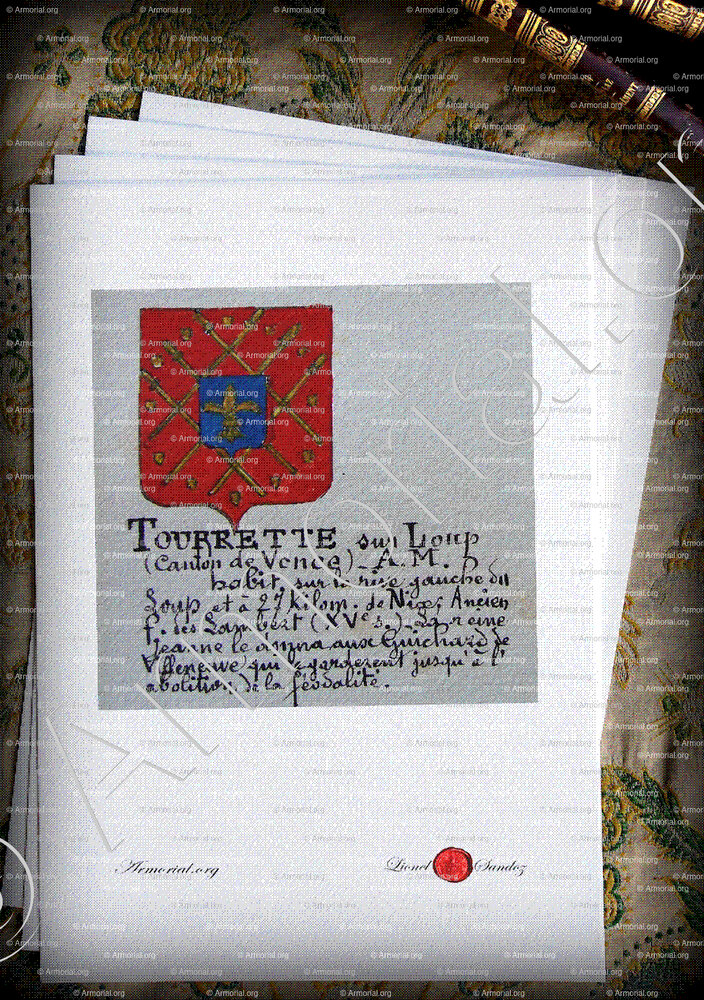 TOURRETTE sur Loup
(Canton de Vence)_A.M.
habit. sur la rive gauche du
Loup et à 27 kilom. de Nice. Ancien
f. des Lambert (XVe s.)_La reine
Jeanne le donna aux Guichard de
Villeneuve) qui le garderent jusqu'à l'
abolition de la féodalité.
Armorial.org
Lionel Sandoz
© Armorial.org